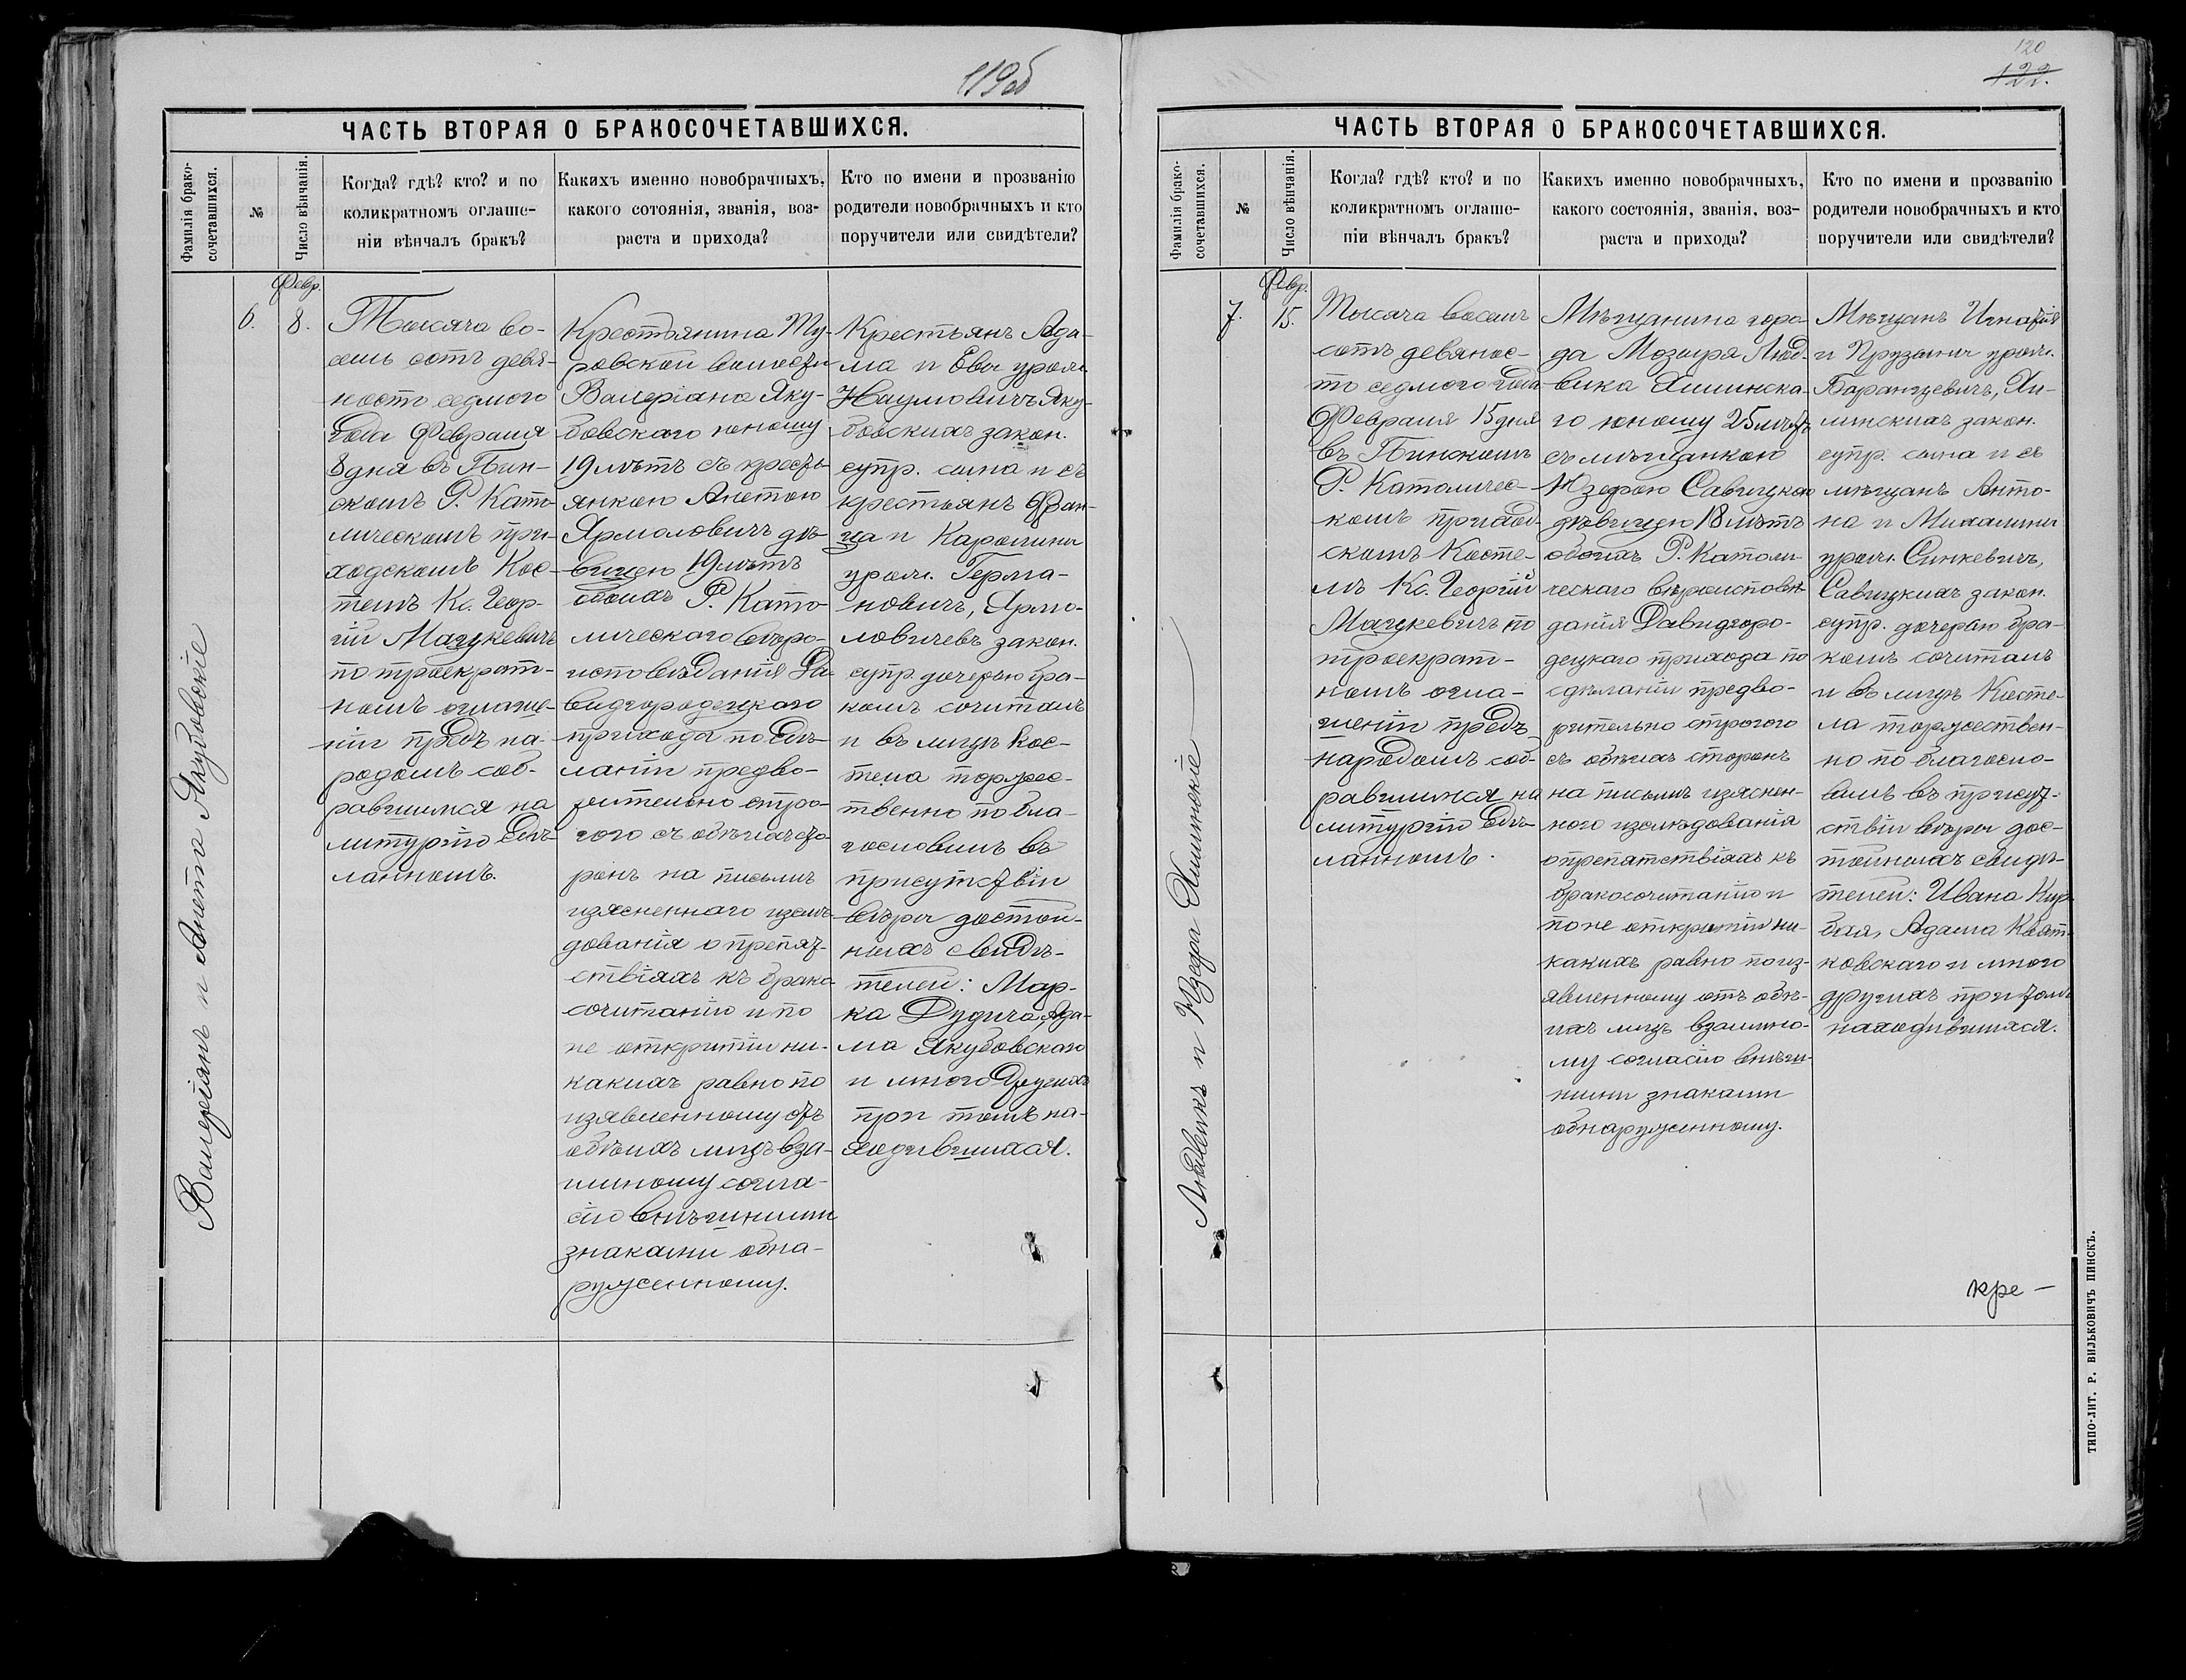 119об
ЧАСТЬ ВТОРАЯ О БРАКОСОЧЕТАВШИХСЯ.
Фамилія брако-
сочетавшихся.
№
Число вѣнчанія.
Когда? гдѣ? кто? и по
коликратномъ оглаше-
ніи вѣнчалъ бракъ?
Какихъ именно новобрачныхъ,
какого сотоянія, званія, воз-
раста и прихода?
Кто по имени и прозванію
родители новобрачныхъ и кто
поручители или свидѣтели?
Валеріанъ и Анета Якубовскіе
6.
Февр.
8.
Тысяча во-
семь сотъ девя-
носто седмого
года Февраля
8 дня въ Пин-
скомъ Р. Като-
лическомъ при-
ходскомъ Кос-
телѣ Кс. Геор-
гій Мацкевичъ
по троекрат-
номъ оглаше-
ніи предъ на-
родомъ соб-
равшимся на
литургію сдѣ-
ланномъ.
Крестьянина Ту-
ровской волости
Валеріана Яку-
бовскаго юношу
19 лѣтъ съ кресть-
янкою Анетою
Ярмоловичъ дѣ-
вицею 19 лѣтъ
обоихъ Р. Като-
лическаго вѣро-
исповѣданія Да-
видгородецкаго
прихода по сдѣ-
ланіи предво-
рительно стро-
гого съ обѣихъ сто-
ронъ на письмѣ
изясненнаго изслѣ-
дованія о препят-
ствіяхъ къ брако-
сочитанію и по
не открытіи ни-
какихъ равно по
изявленному отъ
обѣихъ лицъ вза-
имному согла-
сію внѣшними
знаками обна-
руженному.
Крестьянъ Ада-
ма и Евы урож.
Наумовичъ Яку-
бовскихъ закон.
супр. сына и съ
крестьянъ Фран-
ца и Каролины
урож. Герма-
новичъ, Ярмо-
ловичевъ закон.
супр. дочерью бра-
комъ сочиталъ
и въ лицѣ Кос-
тела торжес-
твенно побла-
гословилъ въ
присутствіи
вѣры достой-
ныхъ свидѣ-
телей: Мар-
ка Дудича, Ада-
ма Якубовскаго
и много другихъ
при томъ на-
ходившихся.
120
122.
ЧАСТЬ ВТОРАЯ О БРАКОСОЧЕТАВШИХСЯ.
Фамилія брако-
сочетавшихся.
№
Число вѣнчанія.
Когда? гдѣ? кто? и по
коликратномъ оглаше-
ніи вѣнчалъ бракъ?
Какихъ именно новобрачныхъ,
какого состоянія, званія, воз-
раста и прихода?
Кто по имени и прозванію
родители новобрачныхъ и кто
поручители или свидѣтели?
Людвикъ и Юзефа
7.
Февр.
15.
Тысяча восемь
сотъ девянос-
то седмого года
Февраля 15 дня
въ Пинскомъ
Р. Католичес-
комъ приход-
скомъ Косте-
лѣ Кс. Георгій
Мацкевичъ по
троекрат-
номъ огла-
шеніи предъ
народомъ соб-
равшимся на
литургію сдѣ-
ланномъ.
Мѣщанина горо-
да Мозыря Люд-
вика
го юношу 25 лѣтъ
съ мѣщанкою
Юзефою Савицкою
дѣвицею 18 лѣтъ
обоихъ Р. Католи-
ческаго вѣроисповѣ-
данія Давидгоро-
децкаго прихода по
сдѣланіи предво-
рительно строгого
съ обѣихъ сторонъ
на письмѣ изяснен-
ного изслѣдованія
о препятствіяхъ къ
бракосочитанію и
по не открытіи ни-
какихъ равно по из-
явленному отъ обѣ-
ихъ лицъ взаимно-
му согласію внѣш-
ними знаками
обнаруженному.
Мѣщанъ Игнатія
и урож.
Баранцевичъ,
закон.
супр. сына и съ
мѣщанъ Анто-
на и Михалины
урож. Синкевичъ,
Савицкихъ закон.
супр. дочерью бра-
комъ сочиталъ
и въ лицѣ Косте-
ла торжествен-
но поблагосло-
вилъ въ присут-
ствіи вѣры дос-
тойныхъ свидѣ-
телей: Ивана Кур-
бая, Адама Квят-
ковскаго и много
другихъ при томъ
находившихся.
кре-
ТИПО-ЛИТ. Р. ВИЛЬКОВИЧЪ ПИНСКЪ.